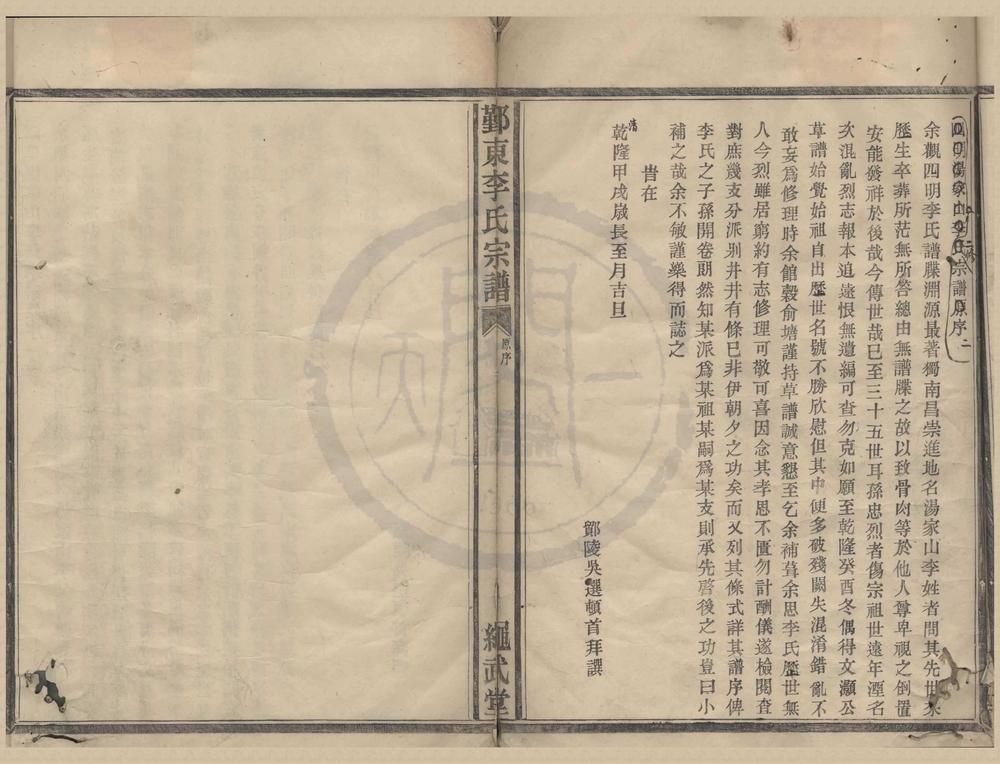 四明湯家山李氏宗譜原序二
余觀四明李氏譜牒淵源最著獨南昌崇進地名湯家山李姓者問其先世來
歷生卒葬所茫無所答總由無譜牒之故以致骨肉等於他人尊卑視之倒置
安能發祥於後哉今傳世哉已至三十五世耳孫忠烈者傷宗祖世遠年湮名
次混亂烈志報本追遠恨無遺編可查勿克如願至乾隆癸酉冬偶得文灝公
草譜始覺始祖自出歷世名號不勝欣慰但其中便多破殘闕失混淆錯亂不
敢妄爲修理時余館穀俞塘謹持草譜誠意懇至乞余補葺余思李氏歷世無
人今烈雖居窮約有志修理可敬可喜因念其孝思不匱勿計酬儀遂檢閱查
對庶幾支分派别井井有條已非伊朝夕之功矣而又列其條式詳其譜序俾
李氏之子孫開卷朗然知某派爲某祖某嗣爲某支則承先啓後之功豈曰小
補之哉余不敏謹樂得而誌之
旹在
清
乾隆甲戌歲長至月吉旦
鄮陵吳選頓首拜譔
鄞東李氏宗譜
原序
繩武堂